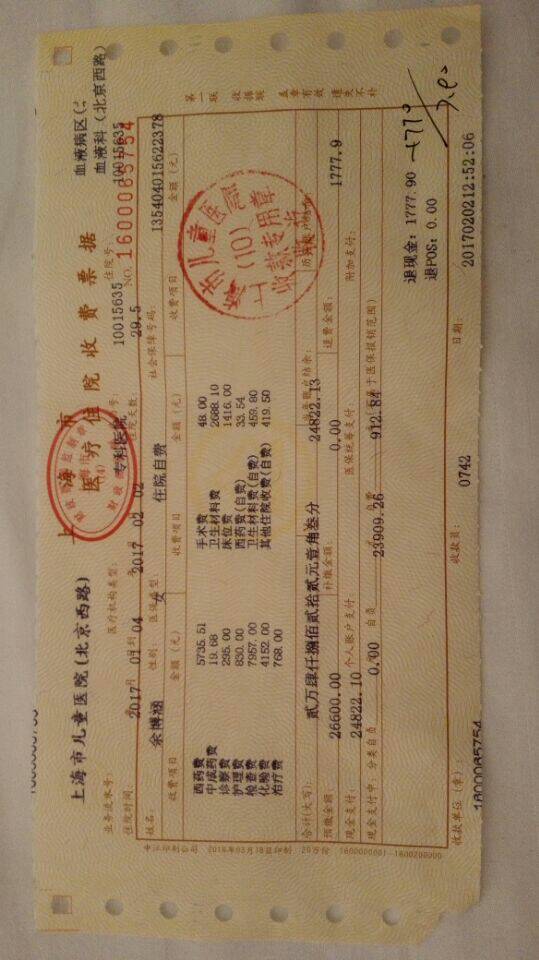 上海市
医疗住院收费票据
上海市儿童医院(北京西路)
专科医院
10015635
血液科(北京西路)
NO. 1600065754
业务流水号:
医疗机构类型:
住院号:
10015635
血液病区(
住院时间:
2017 01 04
2017 02 02
住院天数:
29.5
姓名:
余博涵
性别:
女
医保类型:
住院自费
社会保障号码:
135404015622378
收费项目 金额(元) 收费项目 金额(元) 收费项目 金额(元)
西药费 5735.51 手术费 48.00
中成药费 19.68 卫生材料费 2688.10
诊察费 295.00 床位费 1416.00
护理费 830.00 西药费(自费) 33.54
检查费 7957.00 卫生材料费(自费) 459.80
化验费 4152.00 其他住院收费(自费) 419.50
治疗费 768.00
儿童医院
(10)
收费专用章
合计(大写) 贰万肆仟捌佰贰拾贰元壹角叁分 24822.13
预缴金额 26600.00 补缴金额: 0.00 退费金额: 1777.9
现金支付: 24822.10 个人账户支付: 医保统筹支付: 附加支付:
现金支付中: 分类自负 0.00 自负 23909.26 自费 912.84 (不属于医保报销范围)
退现金: 1777.90
退POS: 0.00
收款单位(章): 收款员: 0742 日期: 20170202 12:52:06
1600065754
第一联 收据联 盖章有效 遗失不补